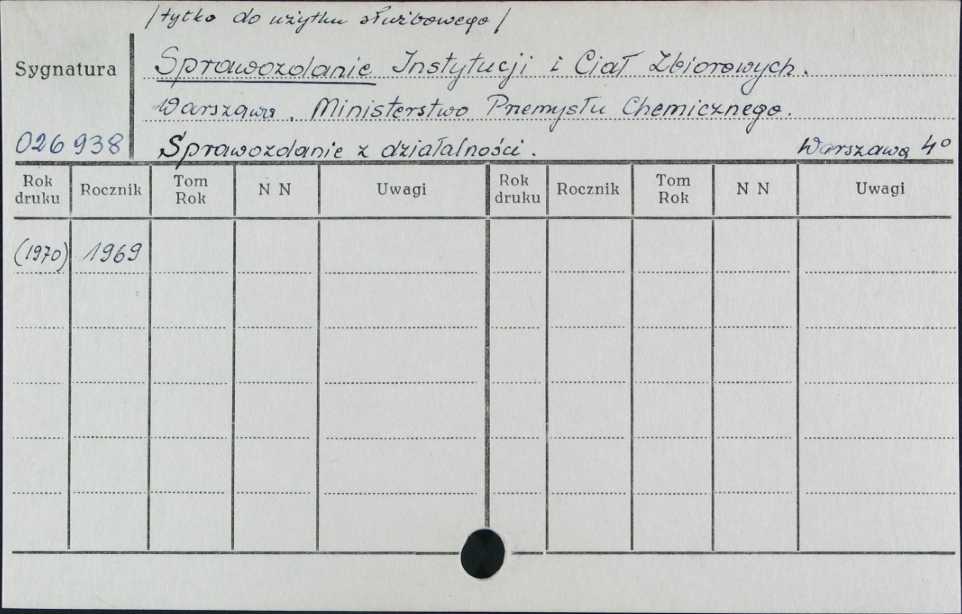 /tylko do użytku służbowego/
Sygnatura Sprawozdanie Instytucji i Ciał Zbiorowych.
Warszawa. Ministerstwo Przemysłu Chemicznego.
026938 Sprawozdanie z działalności. Warszawa 4°
Rok druku Rocznik Tom Rok N N Uwagi Rok druku Rocznik Tom Rok N N Uwagi
(1970) 1969